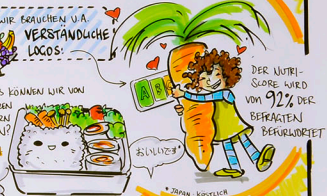 WIR BRAUCHEN U.A.
VERSTÄNDLICHE
LOGOS:
A B
DER NUTRI-
SCORE WIRD
VON 92% DER
BEFRAGTEN
BEFÜRWORTET
S KÖNNEN WIR VON
おいしいです*
* JAPAN: KÖSTLICH